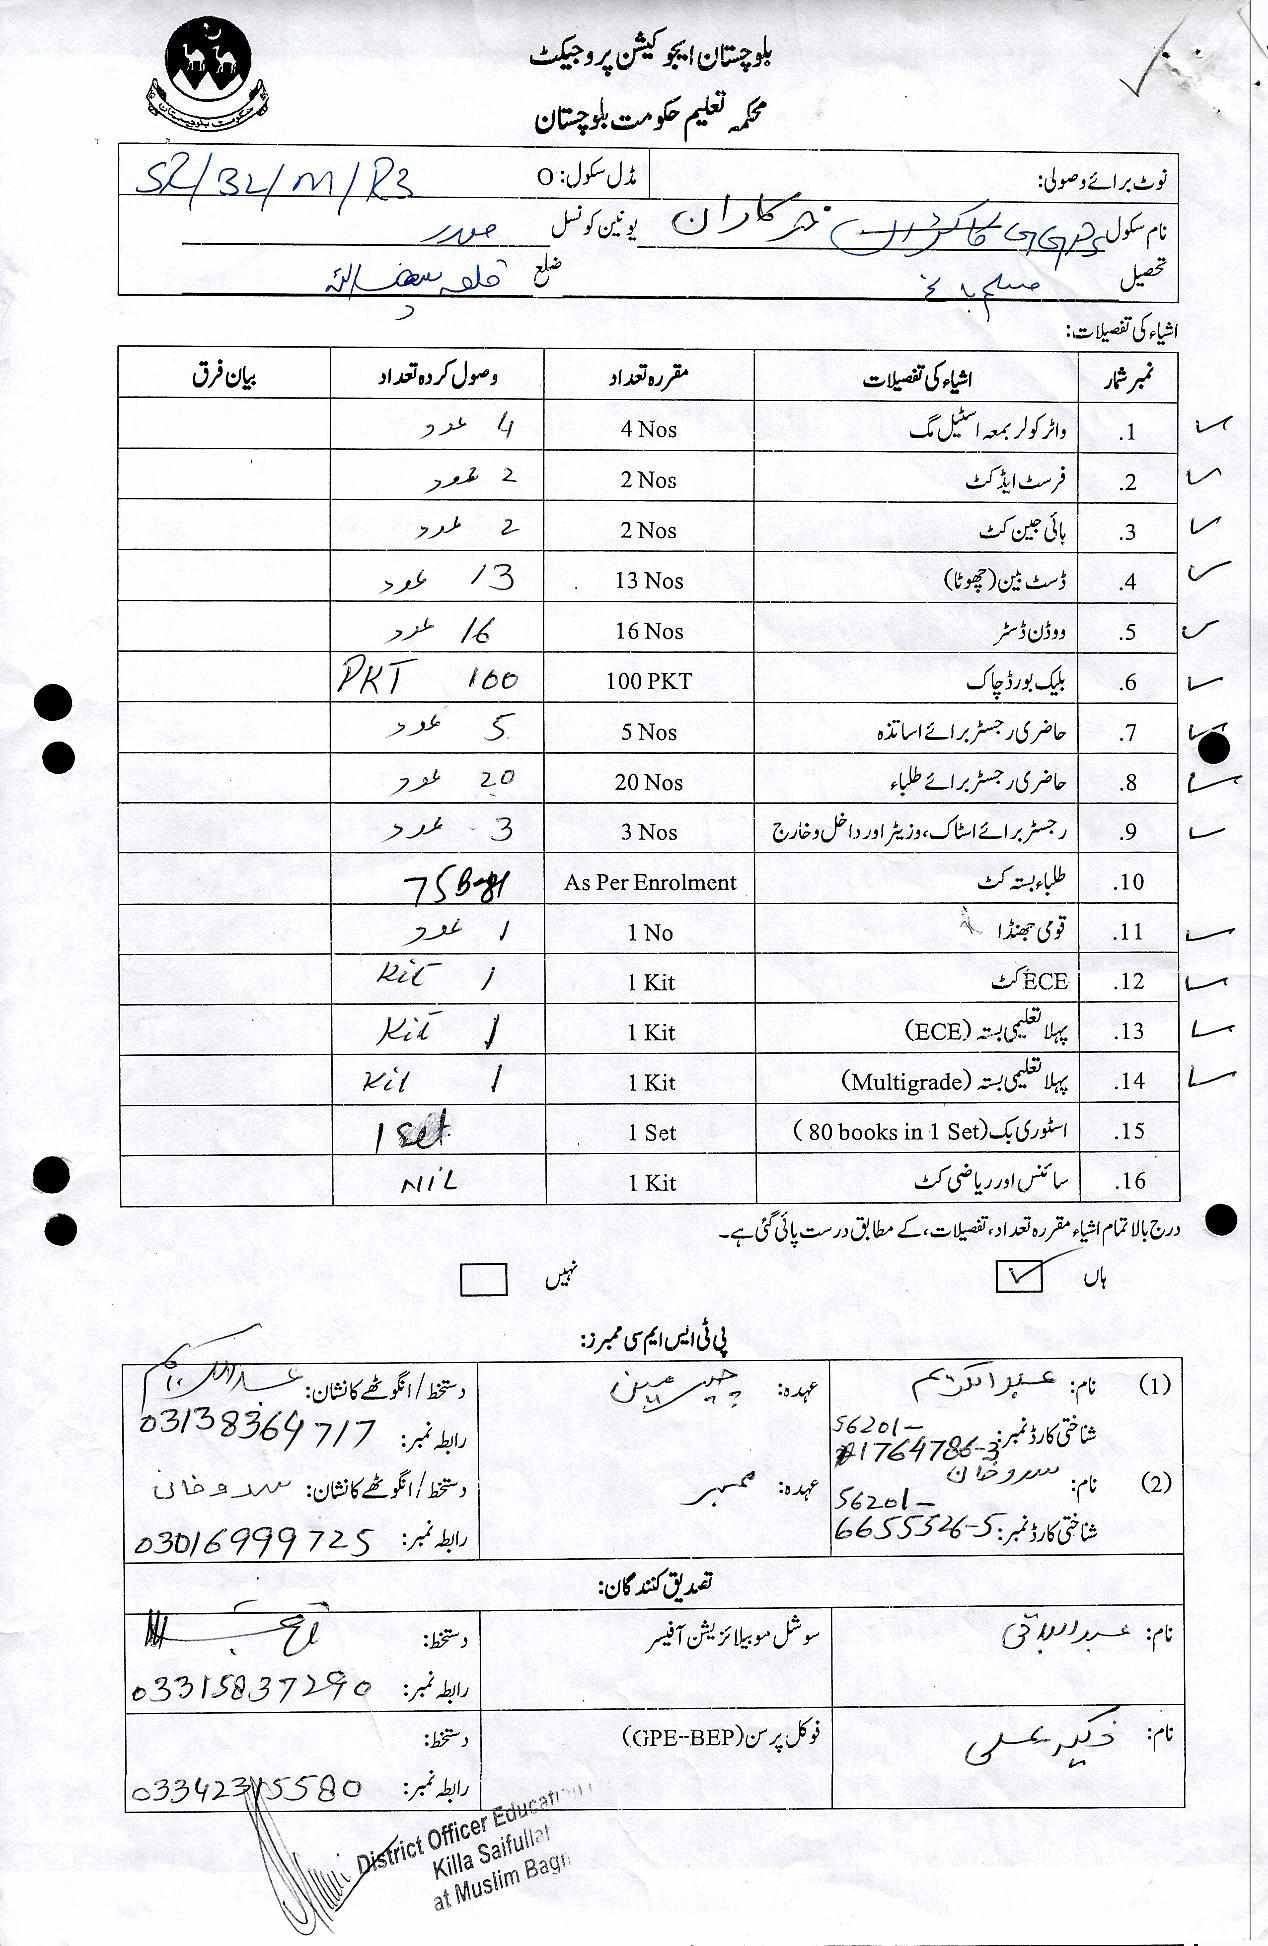 بلوچستان ایجوکیشن پروجیکٹ
محکمہ تعلیم حکومت بلوچستان
حکومت بلوچستان
نوٹ برائے وصولی: مڈل سکول: O S2/32/M/R3
نام سکول GGPS خرکاران یونین کونسل صدر
تحصیل مسلم باغ ضلع قلعہ سیف اللہ
اشیاء کی تفصیلات:
نمبر شمار اشیاء کی تفصیلات مقررہ تعداد وصول کردہ تعداد بیان فرق
1. واٹر کولر بمعہ اسٹیل مگ 4 Nos 4 عدد
2. فرسٹ ایڈ کٹ 2 Nos 2 عدد
3. ہائی جین کٹ 2 Nos 2 عدد
4. ڈسٹ بین (چھوٹا) 13 Nos 13 عدد
5. ووڈن ڈسٹر 16 Nos 16 عدد
6. بلیک بورڈ چاک 100 PKT 100 PKT
7. حاضری رجسٹر برائے اساتذہ 5 Nos 5 عدد
8. حاضری رجسٹر برائے طلباء 20 Nos 20 عدد
9. رجسٹر برائے اسٹاک، وزیٹر اور داخل و خارج 3 Nos 3 عدد
10. طلباء بستہ کٹ As Per Enrolment 75 Bags
11. قومی جھنڈا 1 No 1 عدد
12. ECE کٹ 1 Kit 1 Kit
13. پہلا تعلیمی بستہ (ECE) 1 Kit 1 Kit
14. پہلا تعلیمی بستہ (Multigrade) 1 Kit 1 Kit
15. اسٹوری بک (80 books in 1 Set) 1 Set 1 Set
16. سائنس اور ریاضی کٹ 1 Kit NIL
درج بالا تمام اشیاء مقررہ تعداد، تفصیلات، کے مطابق درست پائی گئی ہے۔
ہاں نہیں
پی ٹی ایس ایم سی ممبرز:
(1) نام: عبدالکریم عہدہ: چیئرمین دستخط/انگوٹھے کا نشان: عبدالکریم
شناختی کارڈ نمبر: 56201-1764786-3 رابطہ نمبر: 03138364717
(2) نام: سدوخان عہدہ: ممبر دستخط/انگوٹھے کا نشان: سدوخان
شناختی کارڈ نمبر: 56201-6655526-5 رابطہ نمبر: 03016999725
تصدیق کنندگان:
نام: عبدالباقی سوشل موبیلائزیشن آفیسر دستخط:
رابطہ نمبر: 03315837290
نام: ذکیہ علی فوکل پرسن (GPE-BEP) دستخط:
رابطہ نمبر: 03342315580
District Officer Education
Killa Saifullah
at Muslim Bagh